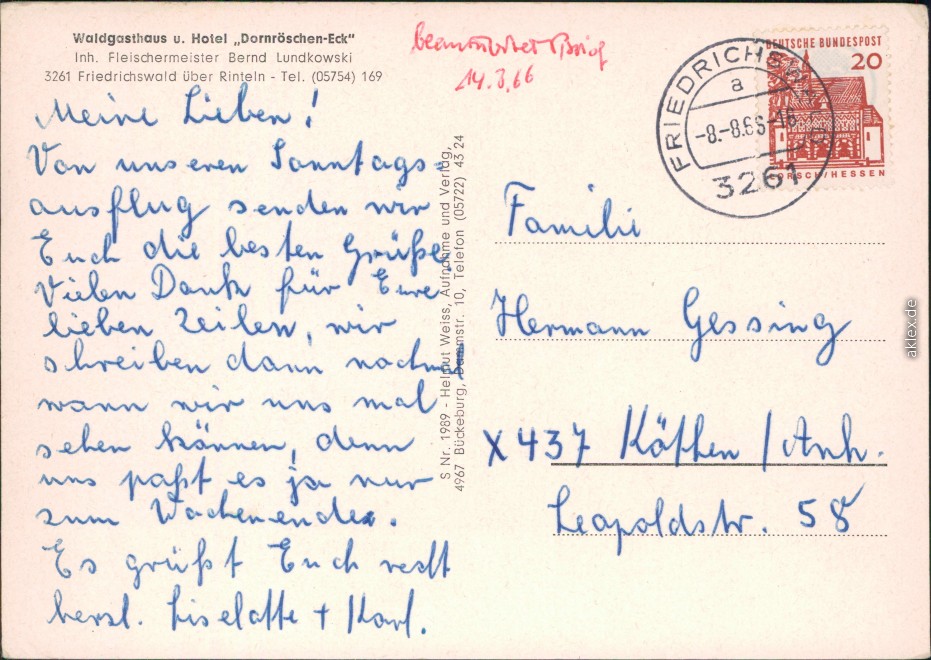 Waldgasthaus u. Hotel „Dornröschen-Eck"
Inh. Fleischermeister Bernd Lundkowski
3261 Friedrichswald über Rinteln - Tel. (05754) 169
beantwortet Brief
14.3.66
DEUTSCHE BUNDESPOST
20
LORSCH/HESSEN
a
-8.-8.66-16
3261
Meine Lieben!
Von unseren Sonntags=
ausflug senden wir
Euch die besten Grüße.
Vielen Dank für Eure
lieben Zeilen, wir
schreiben dann noch
wann wir uns mal
sehen können, denn
uns paßt es ja nur
zum Wochenende.
Es grüßt Euch recht
herzl. Liselotte + Karl.
S Nr. 1989 - Helmut Weiss, Aufnahme und Verlag,
4967 Bückeburg, Dammstr. 10, Telefon (05722) 43 24
Familie
Hermann Gessing
X 437 Köthen / Anh.
Leopoldstr. 58
aklex.de